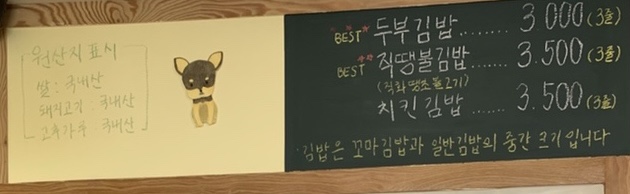 원산지 표시
쌀 : 국내산
돼지고기 : 국내산
고추가루 : 국내산
BEST 두부김밥....... 3.000(3줄)
BEST 직땡불김밥....... 3.500(3줄)
(직화 땡초 불고기)
치킨김밥....... 3.500(3줄)
·김밥은 꼬마김밥과 일반김밥의 중간 크기 입니다